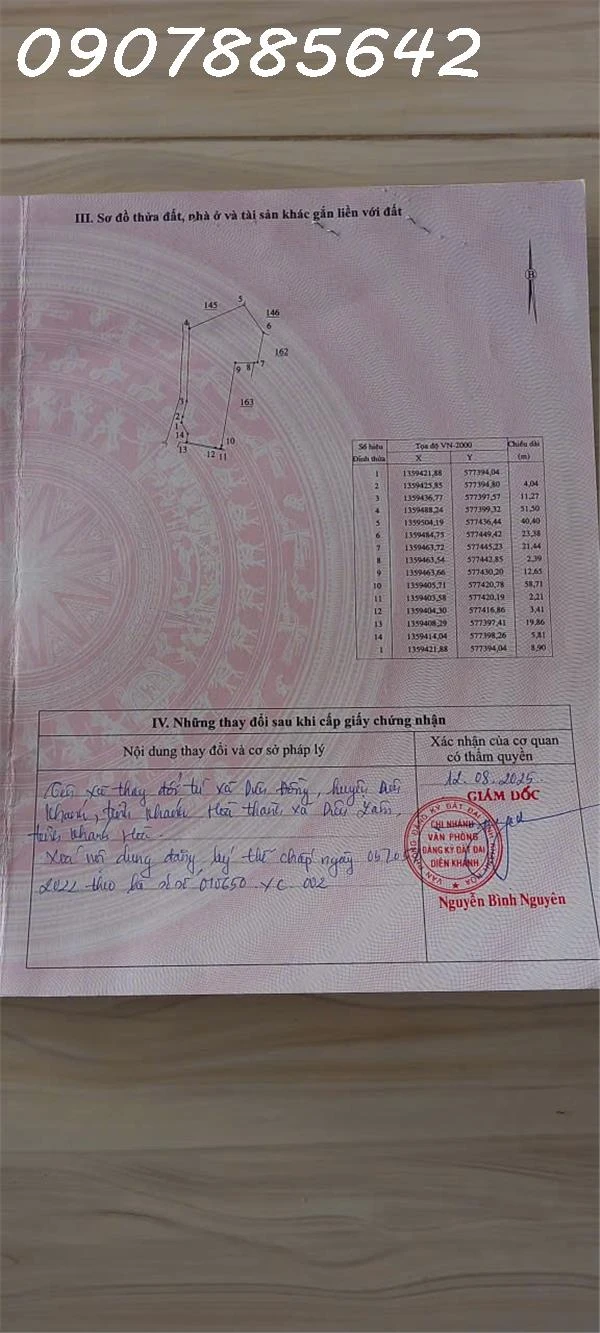 0907885642
III. Sơ đồ thửa đất, nhà ở và tài sản khác gắn liền với đất
B
145
5
146
4
6
162
9 8 7
163
3
2
1
14
13
12
11
10
Số hiệu Đỉnh thửa | Tọa độ VN-2000 | Chiều dài (m)
X Y
1 1359421,88 577394,04
2 1359425,85 577394,80 4,04
3 1359436,77 577397,57 11,27
4 1359488,24 577399,32 51,50
5 1359504,19 577436,44 40,40
6 1359484,75 577449,42 23,38
7 1359463,72 577445,23 21,44
8 1359463,54 577442,85 2,39
9 1359463,66 577430,20 12,65
10 1359405,71 577420,78 58,71
11 1359403,58 577420,19 2,21
12 1359404,30 577416,86 3,41
13 1359408,29 577397,41 19,86
14 1359414,04 577398,26 5,81
1 1359421,88 577394,04 8,90
IV. Những thay đổi sau khi cấp giấy chứng nhận
Nội dung thay đổi và cơ sở pháp lý
Xác nhận của cơ quan
có thẩm quyền
Tên xã thay đổi từ xã Diên Đồng, huyện Diên
Khánh, tỉnh Khánh Hoà thành xã Diên Lâm,
tỉnh Khánh Hoà.
Xoá nội dung đăng ký thế chấp ngày
2022 theo hồ sơ số 010650.XC.002
12.08.2025
GIÁM ĐỐC
CHI NHÁNH
VĂN PHÒNG
ĐĂNG KÝ ĐẤT ĐAI
DIÊN KHÁNH
Nguyễn Bình Nguyên